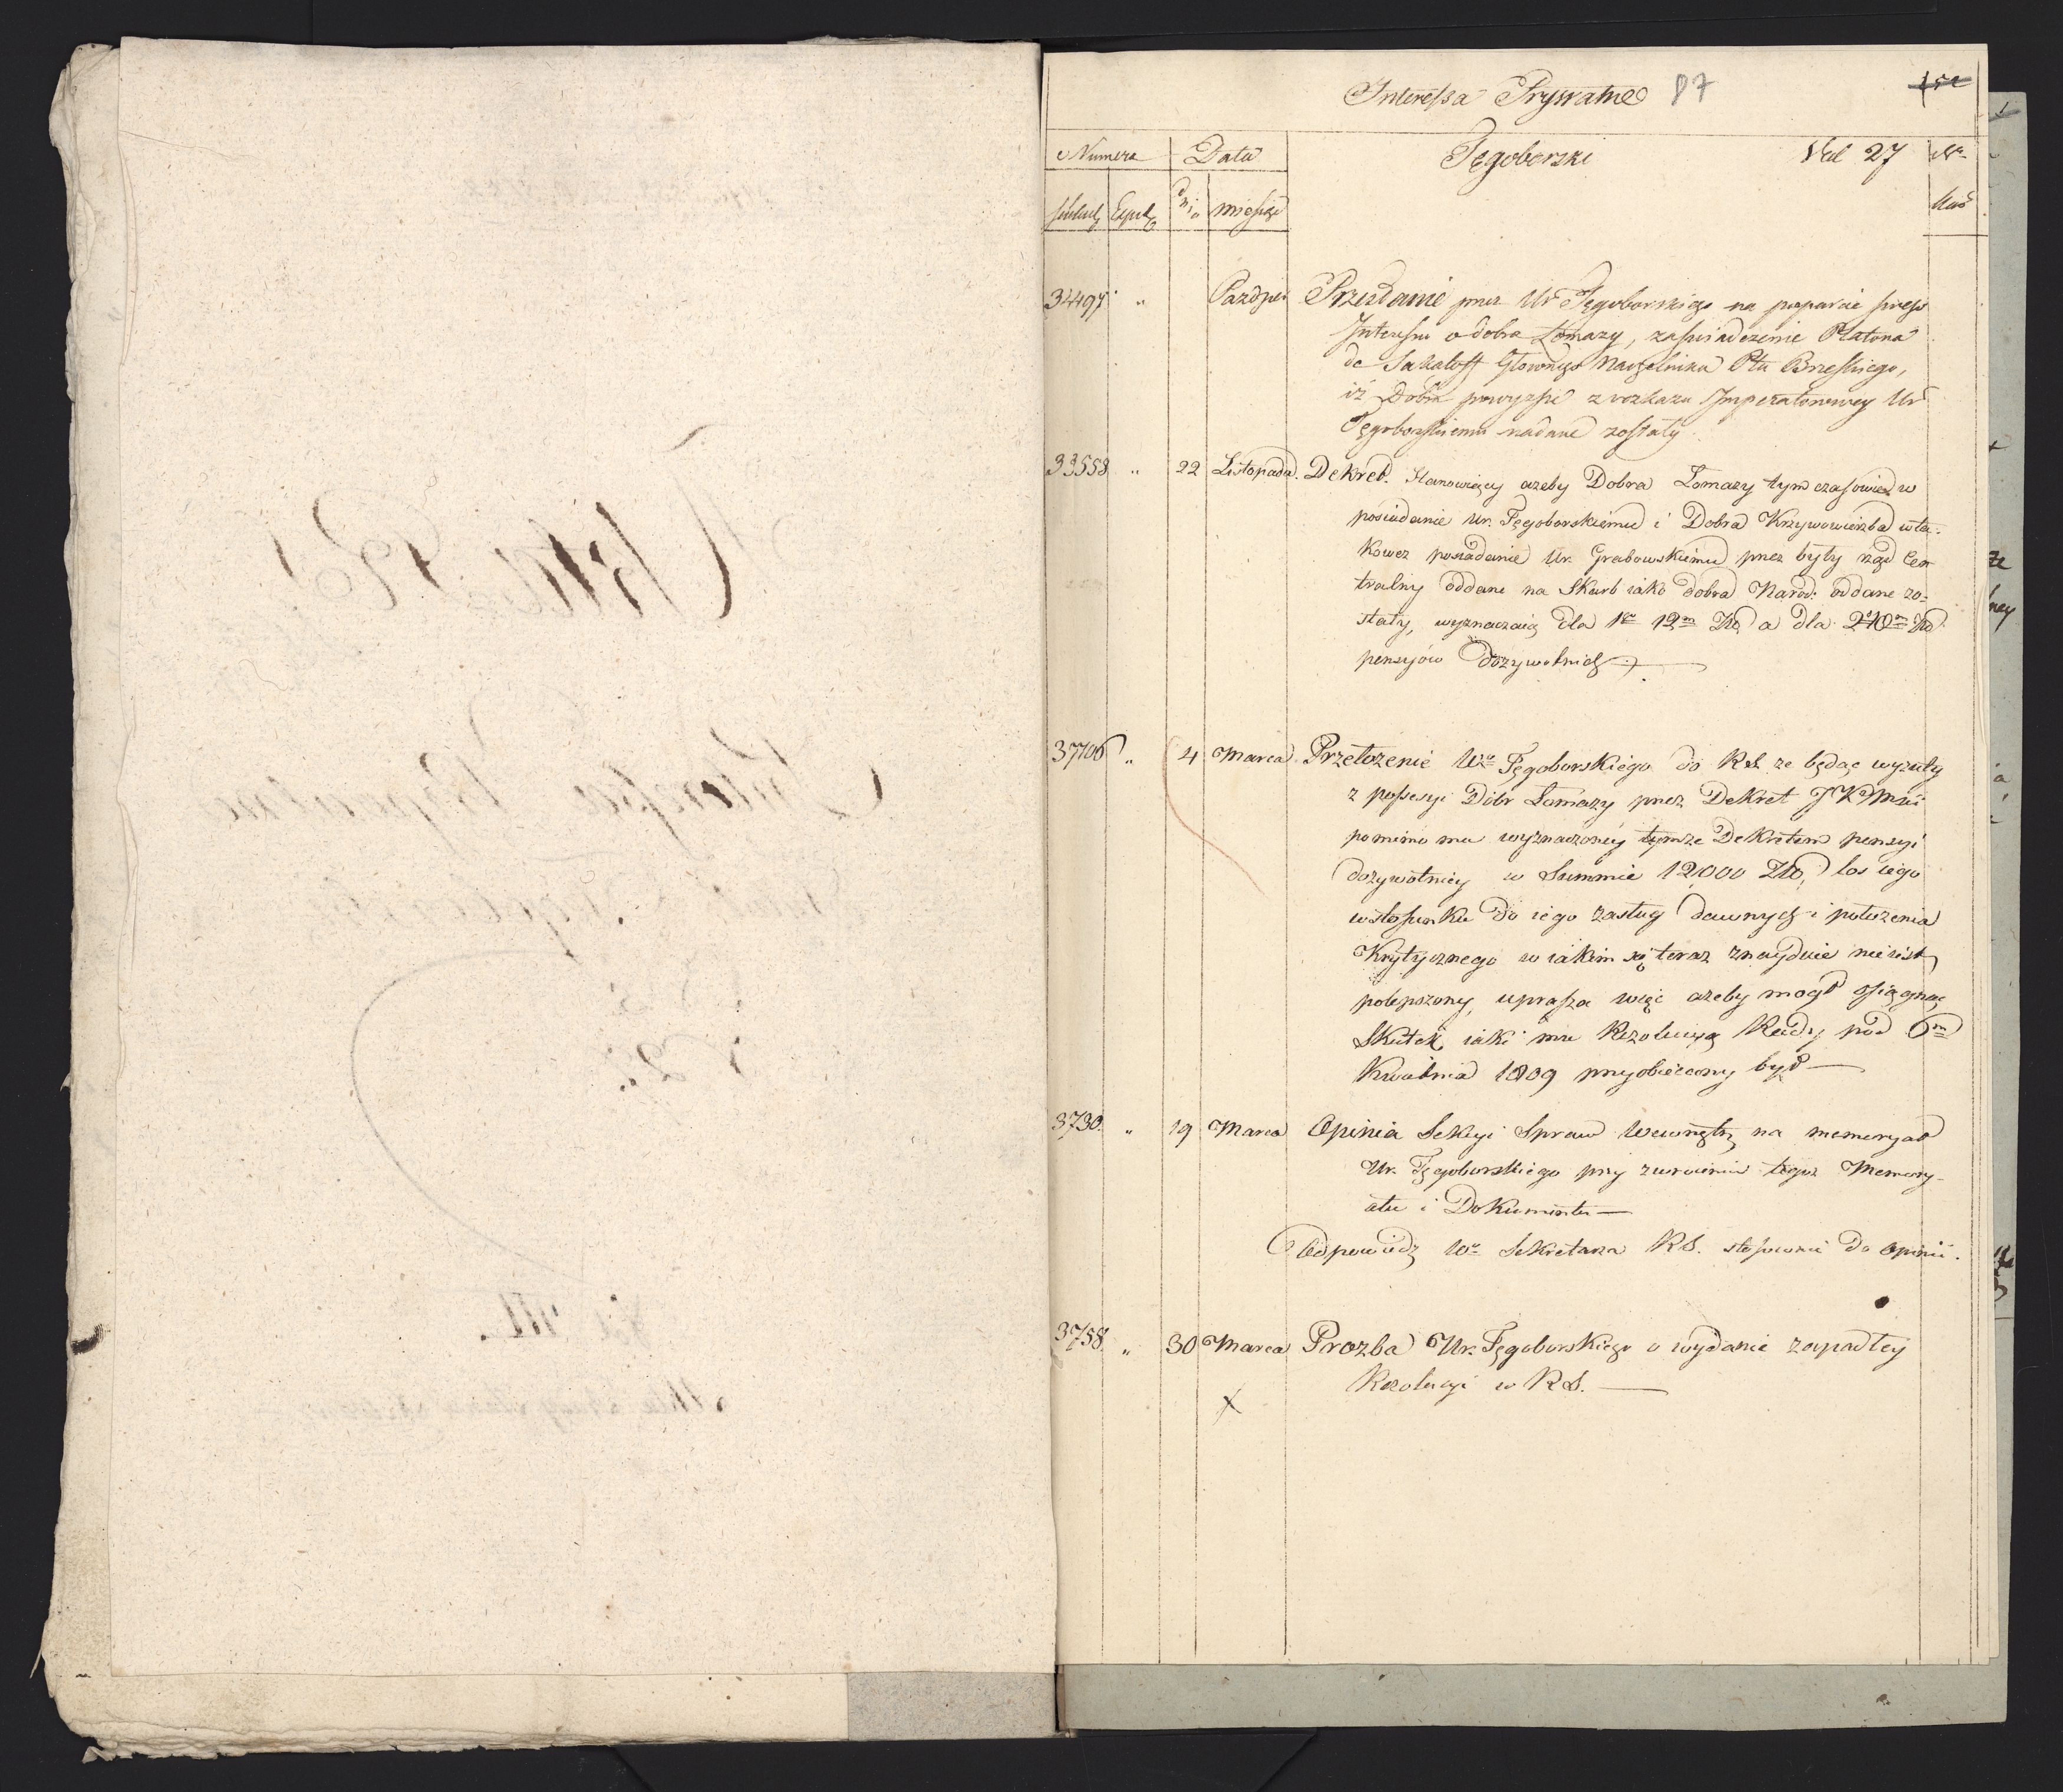 Interessa Prywatne 87
Numera Data Tęgoborski Vol 27 Nr
Exped. Dnia miesiąc
Pazdzier. Przesłanie przez Ur Tęgoborskiego na poparcie swego
Interesu o dobra Łomazy, zaświadczenie Platona
de Sakaloff Głownego Naczelnika Ptu Brzeskiego,
iż Dobra powyższe z rozkazu Imperatorowey Ur
Tęgoborskiemu nadane zostały
33558 " 22 Listopada. Dekret. Stanowiący azeby Dobra Łomazy tymczasowie w
posiadanie Ur. Tęgoborskiemu i Dobra Krzywowierzba w ta-
kowez posiadanie Ur. Grabowskiemu przez były rząd Cen
tralny oddane na Skarb iako dobra Narod: oddane zo-
stały, wyznaczaią dla 1go 12m Złł, a dla 2go 10m Złł
pensyiów dożywotnich
37106 " 4 Marca Przełozenie Ur Tęgoborskiego do RS ze będąc wyzuty
z possesyi Dobr Łomazy przez Dekret JKMści
pomimo mu wyznaczoney tymze Dekretem pensyi
dozywotniey w Summie 12,000 Złł, los iego
w stosunku do iego zasług dawnych i położenia
Krytycznego w iakim się teraz znayduie nie iest
polepszony, uprasza więc azeby mogł osięgnąć
Skutek iaki mu Rezolucyą Rady pod 6m
Kwietnia 1809 przyobiecany był
3730. " 19 Marca Opinia Sekcyi Spraw Wewnętrz na memoryał
Ur. Tęgoborskiego przy zwróceniu tegoż Memory-
ału i Dokumentu
Odpowiedz Ur Sekretarza RS. stosownie do opinii.
3758 " 30 Marca Prozba Ur. Tęgoborskiego o wydanie zapadłey
Rezolucyi w RS.